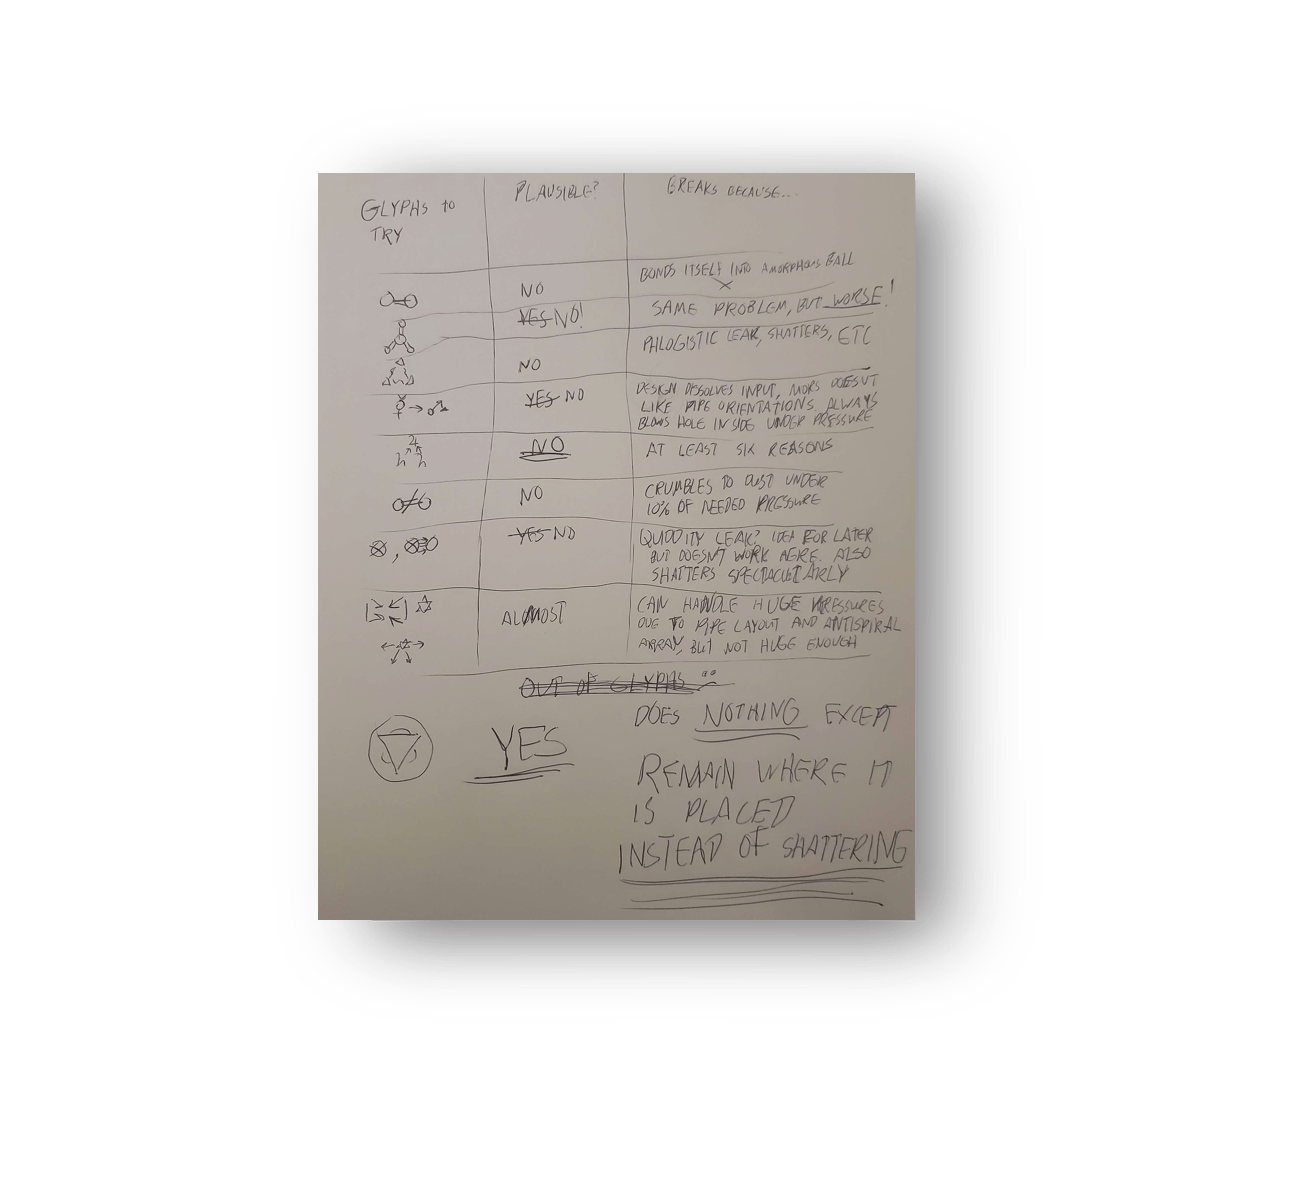 GLYPHS to
TRY
PLAUSIBLE?
BREAKS BECAUSE...
NO
BONDS ITSELF INTO AMORPHOUS BALL
YES NO!
SAME PROBLEM, BUT WORSE!
NO
PHLOGISTIC LEAK, SHATTERS, ETC
☿ → ♂
YES NO
DESIGN DISSOLVES INPUT, MORS DOESNT
LIKE PIPE ORIENTATIONS, ALWAYS
BLOWS HOLE IN SIDE UNDER PRESSURE
NO
AT LEAST SIX REASONS
NO
CRUMBLES TO DUST UNDER
10% OF NEEDED PRESSURE
YES NO
QUIDDITY LEAK? IDEA FOR LATER
BUT DOESN'T WORK HERE. ALSO
SHATTERS SPECTACULARLY
ALMOST
CAN HANDLE HUGE PRESSURES
DUE TO PIPE LAYOUT AND ANTISPIRAL
ARRAY, BUT NOT HUGE ENOUGH
OUT OF GLYPHS
YES
DOES NOTHING EXCEPT
REMAIN WHERE IT
IS PLACED
INSTEAD OF SHATTERING